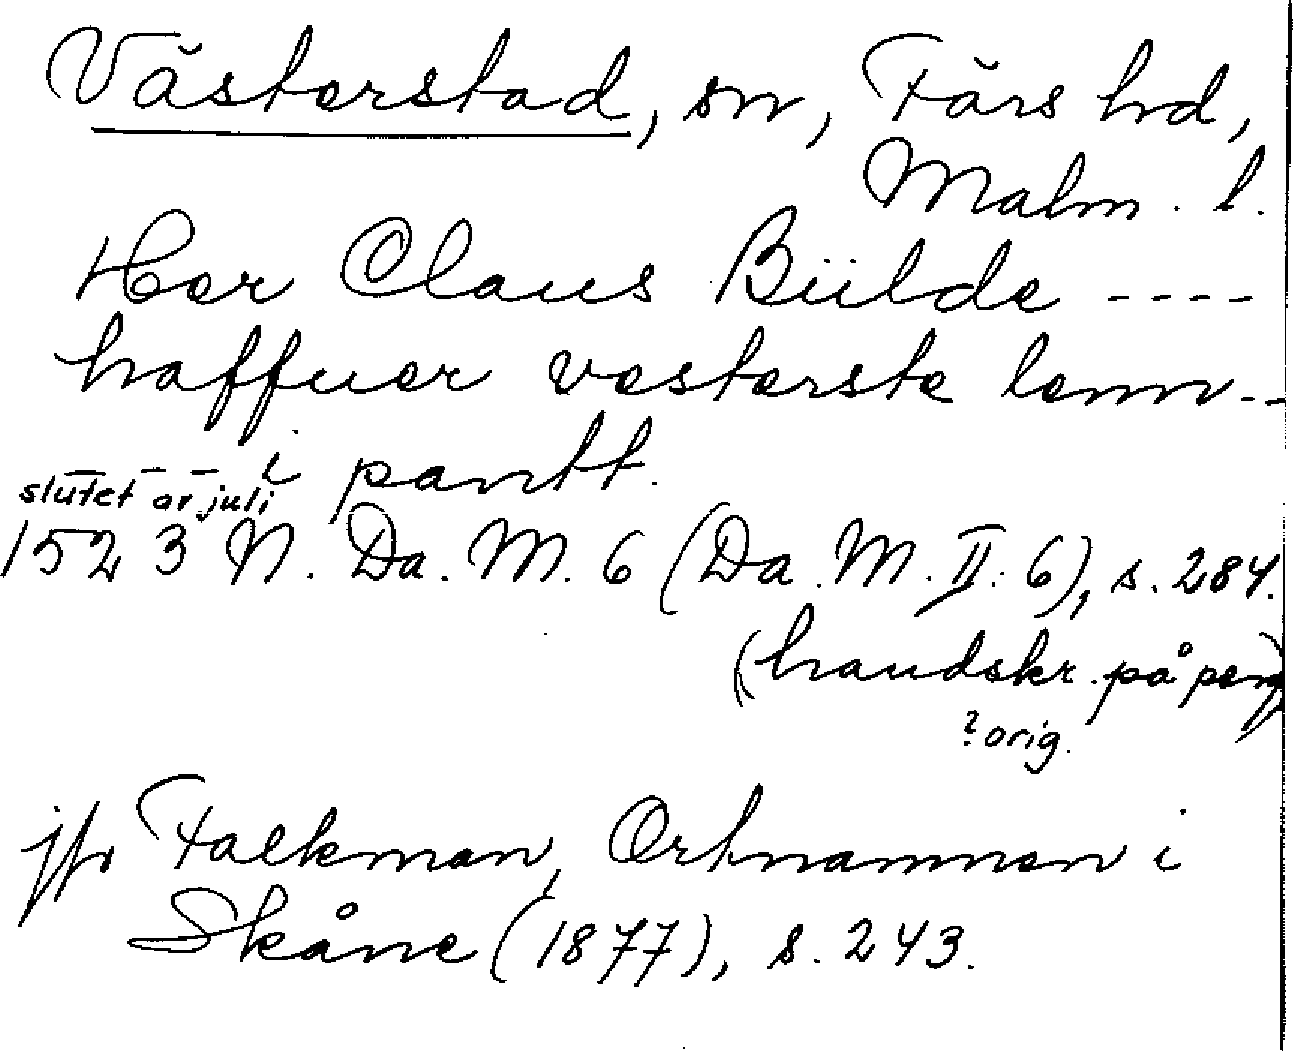 Västerstad, sn, Färs hd,
Malm. l.
Her Claus Biilde ----
haffuer vesterste lenn --
--- i pantt.
slutet av juli
1523 N. Da. M. 6 (Da. M. II. 6), s. 284.
(handskr. på perg)
? orig.
jfr Falkman, Ortnamnen i
Skåne (1877), s. 243.